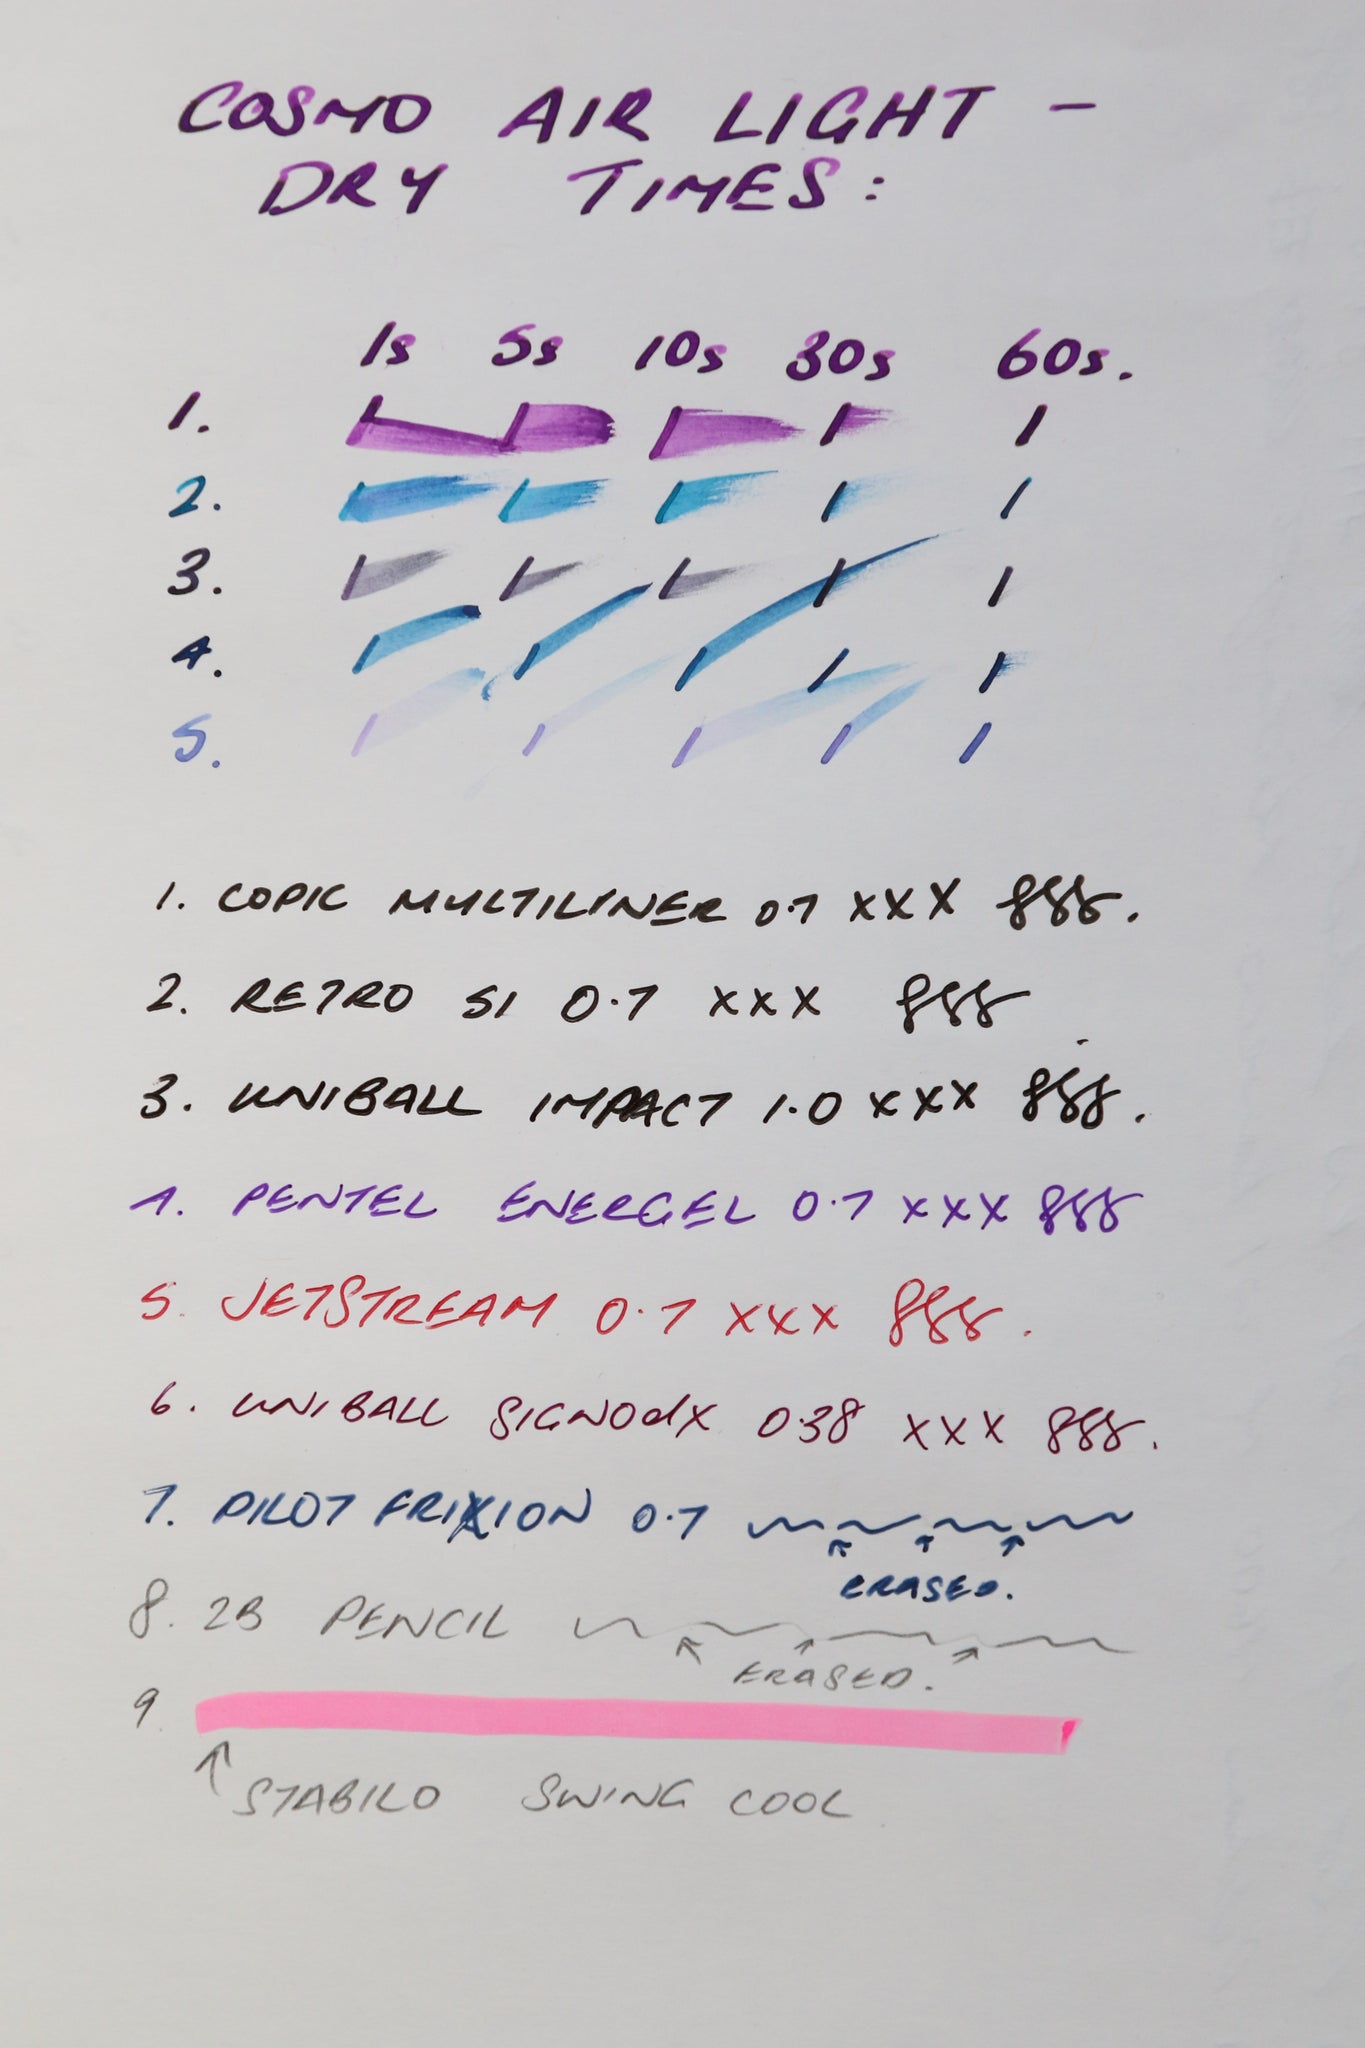 COSMO AIR LIGHT -
DRY TIMES:
1s 5s 10s 30s 60s.
1.
2.
3.
4.
5.
1. COPIC MULTILINER 0.7 xxx
2. RETRO 51 0.7 xxx
3. UNIBALL IMPACT 1.0 xxx
4. PENTEL ENERGEL 0.7 xxx
5. JETSTREAM 0.7 xxx
6. UNIBALL SIGNO dX 0.38 xxx
7. PILOT FRIXION 0.7
ERASED.
8. 2B PENCIL
ERASED.
9
STABILO SWING COOL